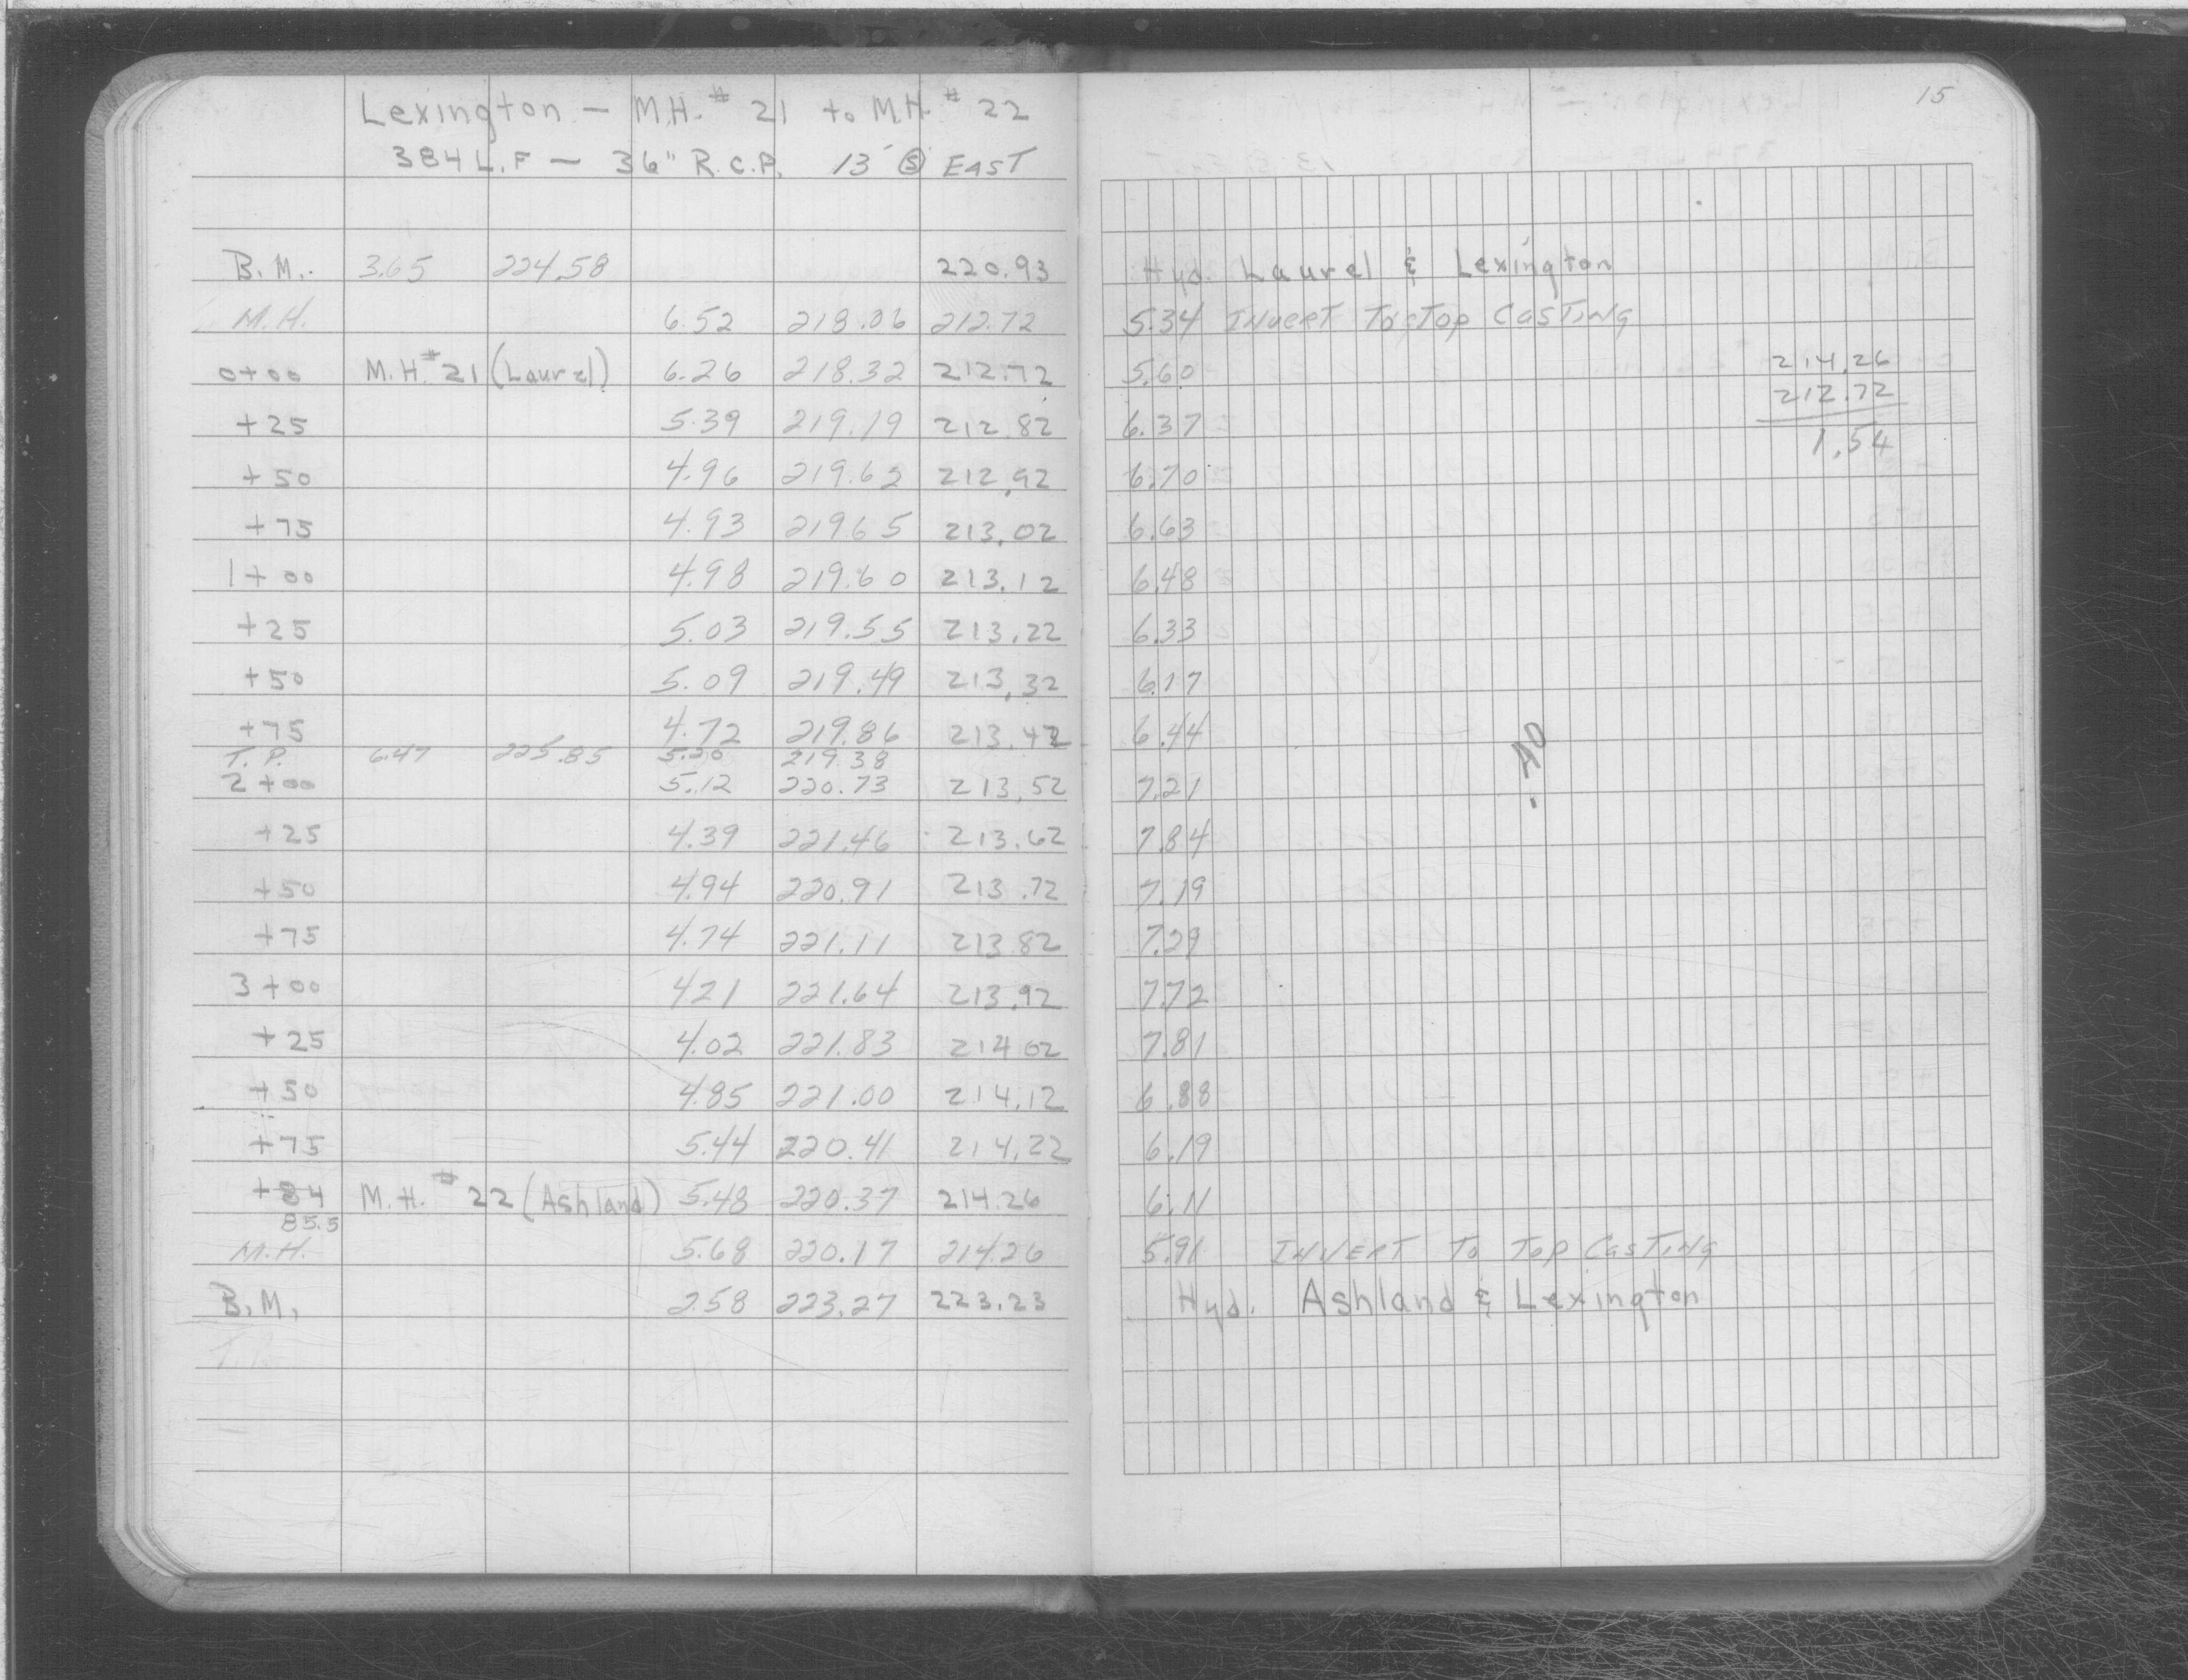 15
Lexington - M.H. # 21 to M.H. # 22
384 L.F - 36" R.C.P. 13' Ⓢ EAST
B.M. 3.65 224.58 220.93 Hyd. Laurel & Lexington
M.H. 6.52 218.06 212.72 5.34 INVERT To Top CASTING
0+00 M.H. # 21 (Laurel) 6.26 218.32 212.72 5.60 214.26
+25 5.39 219.19 212.82 6.37 212.72
+50 4.96 219.62 212.92 6.70 1.54
+75 4.93 219.65 213.02 6.63
1+00 4.98 219.60 213.12 6.48
+25 5.03 219.55 213.22 6.33
+50 5.09 219.49 213.32 6.17
+75 4.72 219.86 213.42 6.44
T.P. 6.47 225.85 5.20 219.38
2+00 5.12 220.73 213.52 7.21
+25 4.39 221.46 213.62 7.84
+50 4.94 220.91 213.72 7.19
+75 4.74 221.11 213.82 7.29
3+00 4.21 221.64 213.92 7.72
+25 4.02 221.83 214.02 7.81
+50 4.85 221.00 214.12 6.88
+75 5.44 220.41 214.22 6.19
+84 M.H. # 22 (Ashland) 5.48 220.37 214.26 6.11
85.5
M.H. 5.68 220.17 214.26 5.91 INVERT To Top CASTING
B.M. 2.58 223.27 223.23 Hyd. Ashland & Lexington
T.P.